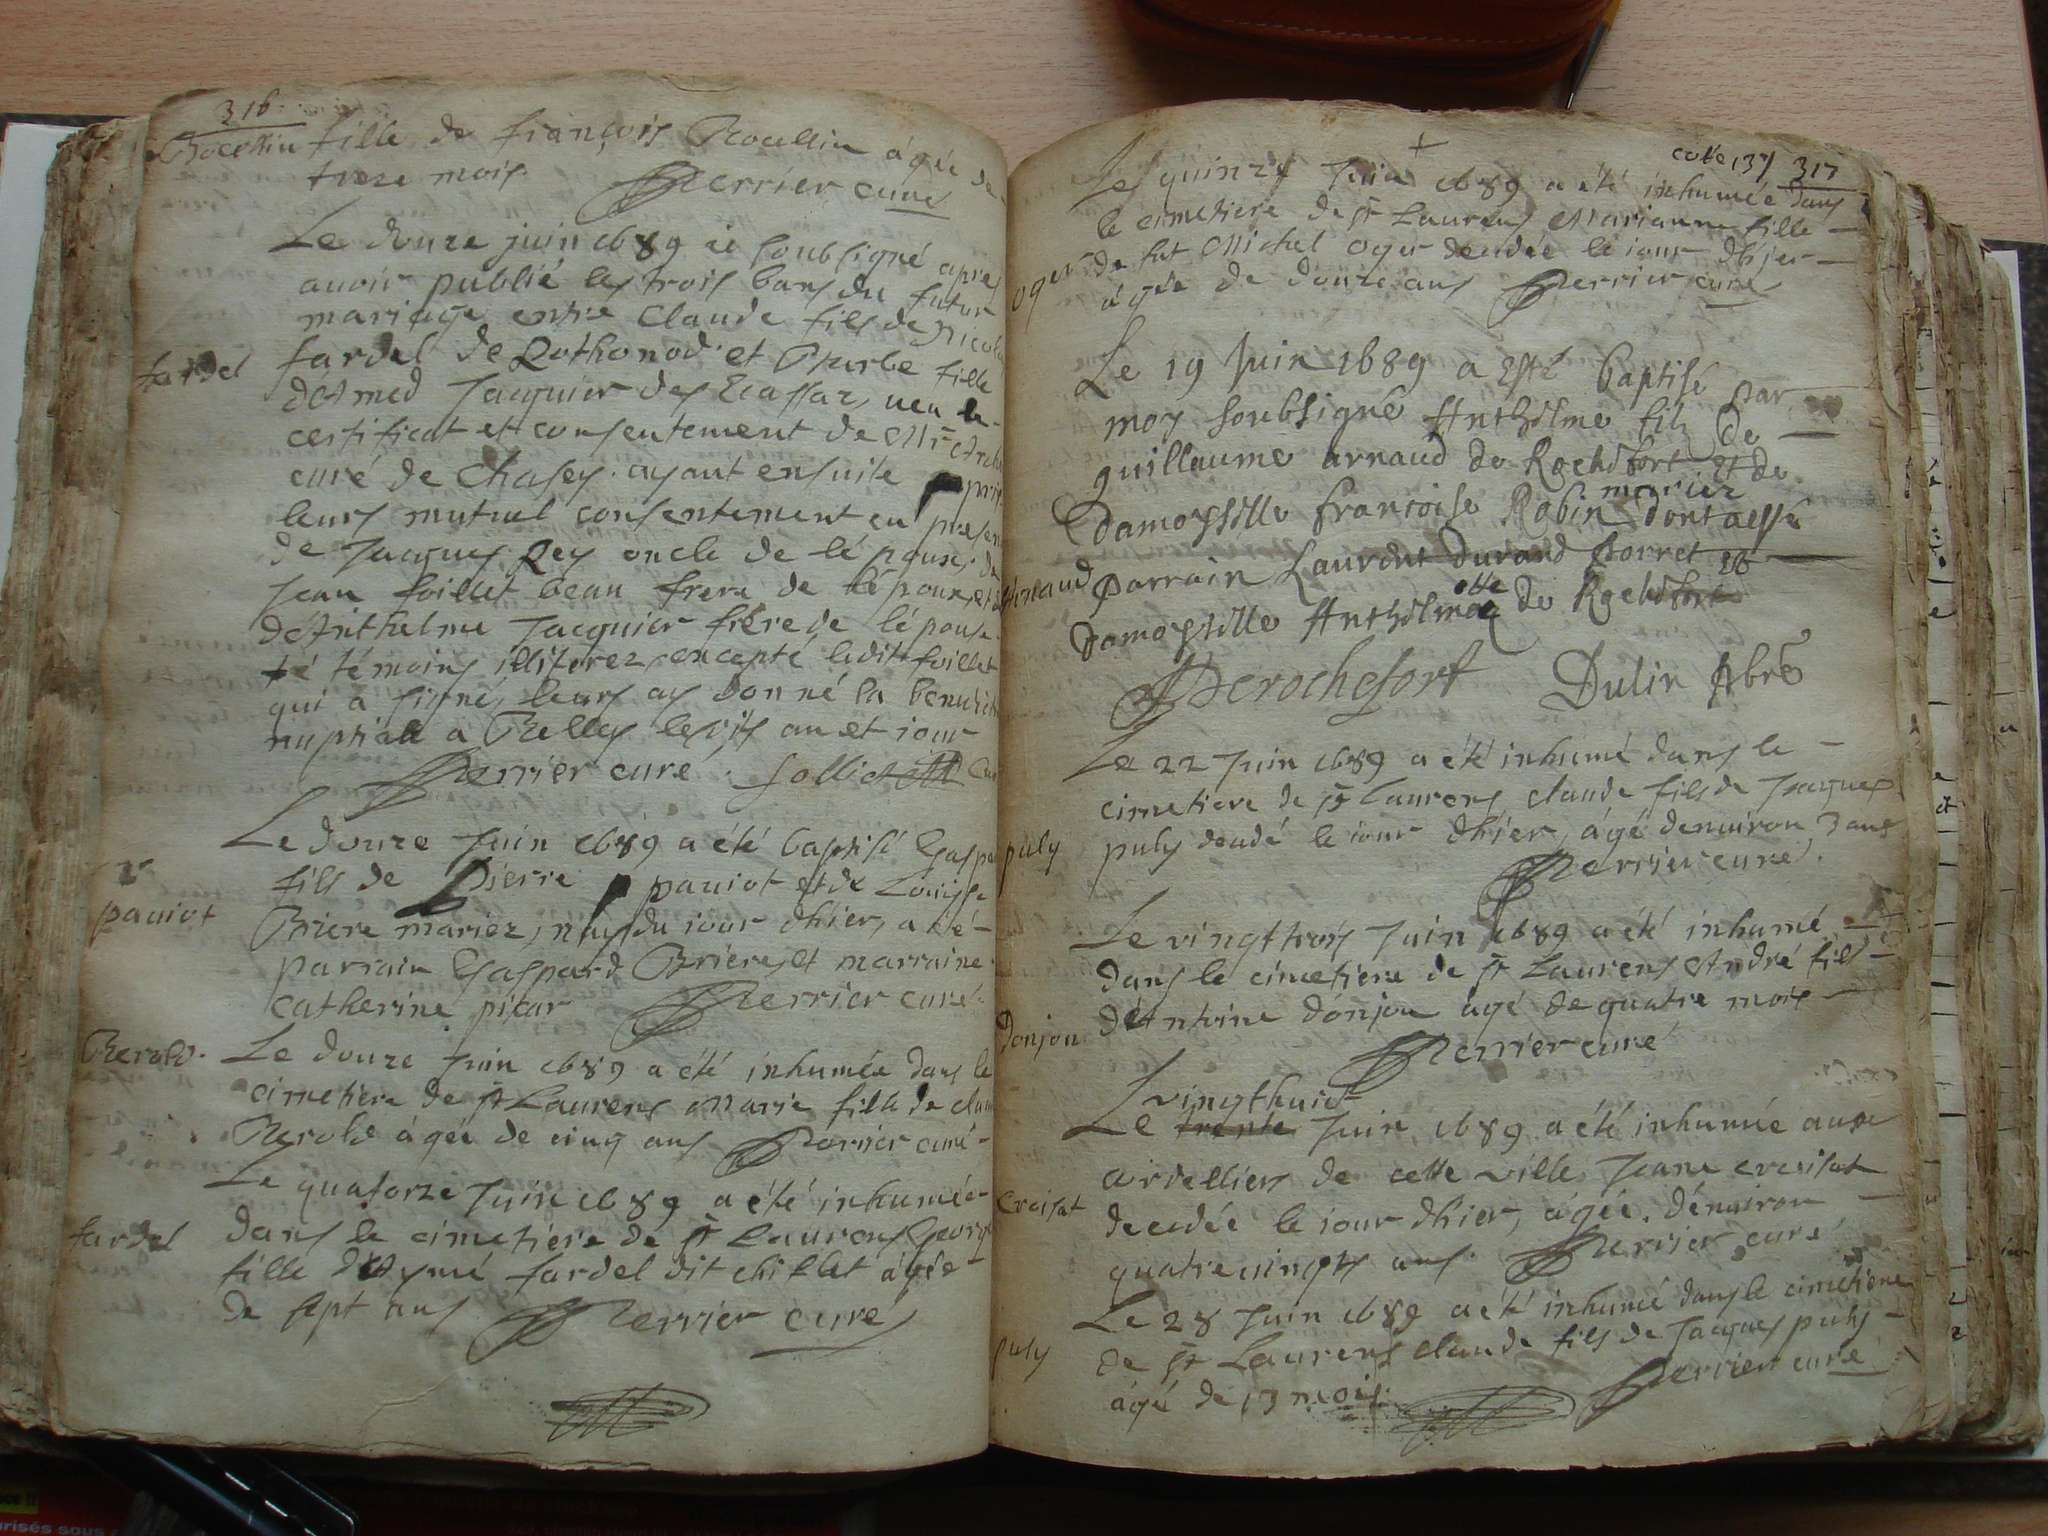 316
Rocellin fille de françois Rocellin âgée de
treze mois. Perrier curé
Le douze juin 1689 ie soubsigné apres
auoir publié les trois bans du futur
mariage entre Claude fils de Nicolas
fardel
fardel de Rothonod et Pharbe fille
d'Amed Jacquier des Ecassaz, ueu le
certificat et consentement de Mre
curé de Chasey. ayant ensuite pris
leurs mutuel consentement en presen
de Jacques Rey oncle de l'épouse, de
Jean foillet beau frere de l'épouse, et
d'Anthelme Jacquier frère de l'épouse
témoins illiterez, excepté ledit foillet
qui a signé, leurs ay donné la
nuptiale a Belley les jour an et iour
Perrier curé. follict
Le douze Juin 1689 a été baptisé Gaspa
pauiot
fils de Pierre pauiot et de Louise
Briere mariez, nay du iour d'hier, a été
parrain Gaspard Briere, et marraine
catherine picar Perrier curé
Berold.
Le douze Juin 1689 a été inhumée dans le
cimetiere de st Laurens Marie fille de clau
Berold âgée de cinq ans Perrier curé
Le quatorze Juin 1689 a été inhumée
fardel
dans le cimetiere de st Laurens
fille d'Aymé fardel dit chiflet âgée
de sept ans Perrier curé
cotte 137 317
Le quinze Juin 1689 a été inhumée dans
le cimetiere de st Laurens Marianne fille
oger
de fut Michel oger decedée le iour d'hier
âgée de douze ans Perrier curé
Le 19 Juin 1689 a Esté baptisé par
moy soubsigné Anthelme fils de
guillaume arnaud de Rochefort Et de
mariez
Damoysille françoise Robin dont a esté
Arnaud
parrain Laurent Durand Porret et
ette
Damoysille Anthelme de Rochefort
Derochefort Dulin
Le 22 Juin 1689 a été inhumé dans le
cimetiere de st Laurens claude fils de Jacques
puly
puly decedé le iour d'hier, âgé denuiron 3 ans
Perrier curé.
Le vingt trois Juin 1689 a été inhumé
dans le cimetiere de st Laurens André fils
Donjon
d'Antoine donjon âgé de quatre mois
Perrier curé
vingthuict
Le trente Juin 1689 a été inhumée aux
cordelliers de cette ville Jeane croisat
croisat
decedée le iour d'hier, âgée. d'énuiron
quatre uingts ans. Perrier curé
Le 28 Juin 1689 a été inhumé dans le cimetiere
puly
de st Laurens claude fils de Jacques puly
âgé de 13 mois. Perrier curé